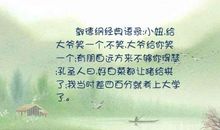 郭德纲经典语录:小妞,给
大爷笑一个,不笑,大爷给你笑
一个;有朋自远方来不够你得瑟
;孔圣人曰,好白菜都让猪给拱
了;我当时差四百分就考上大学
了。